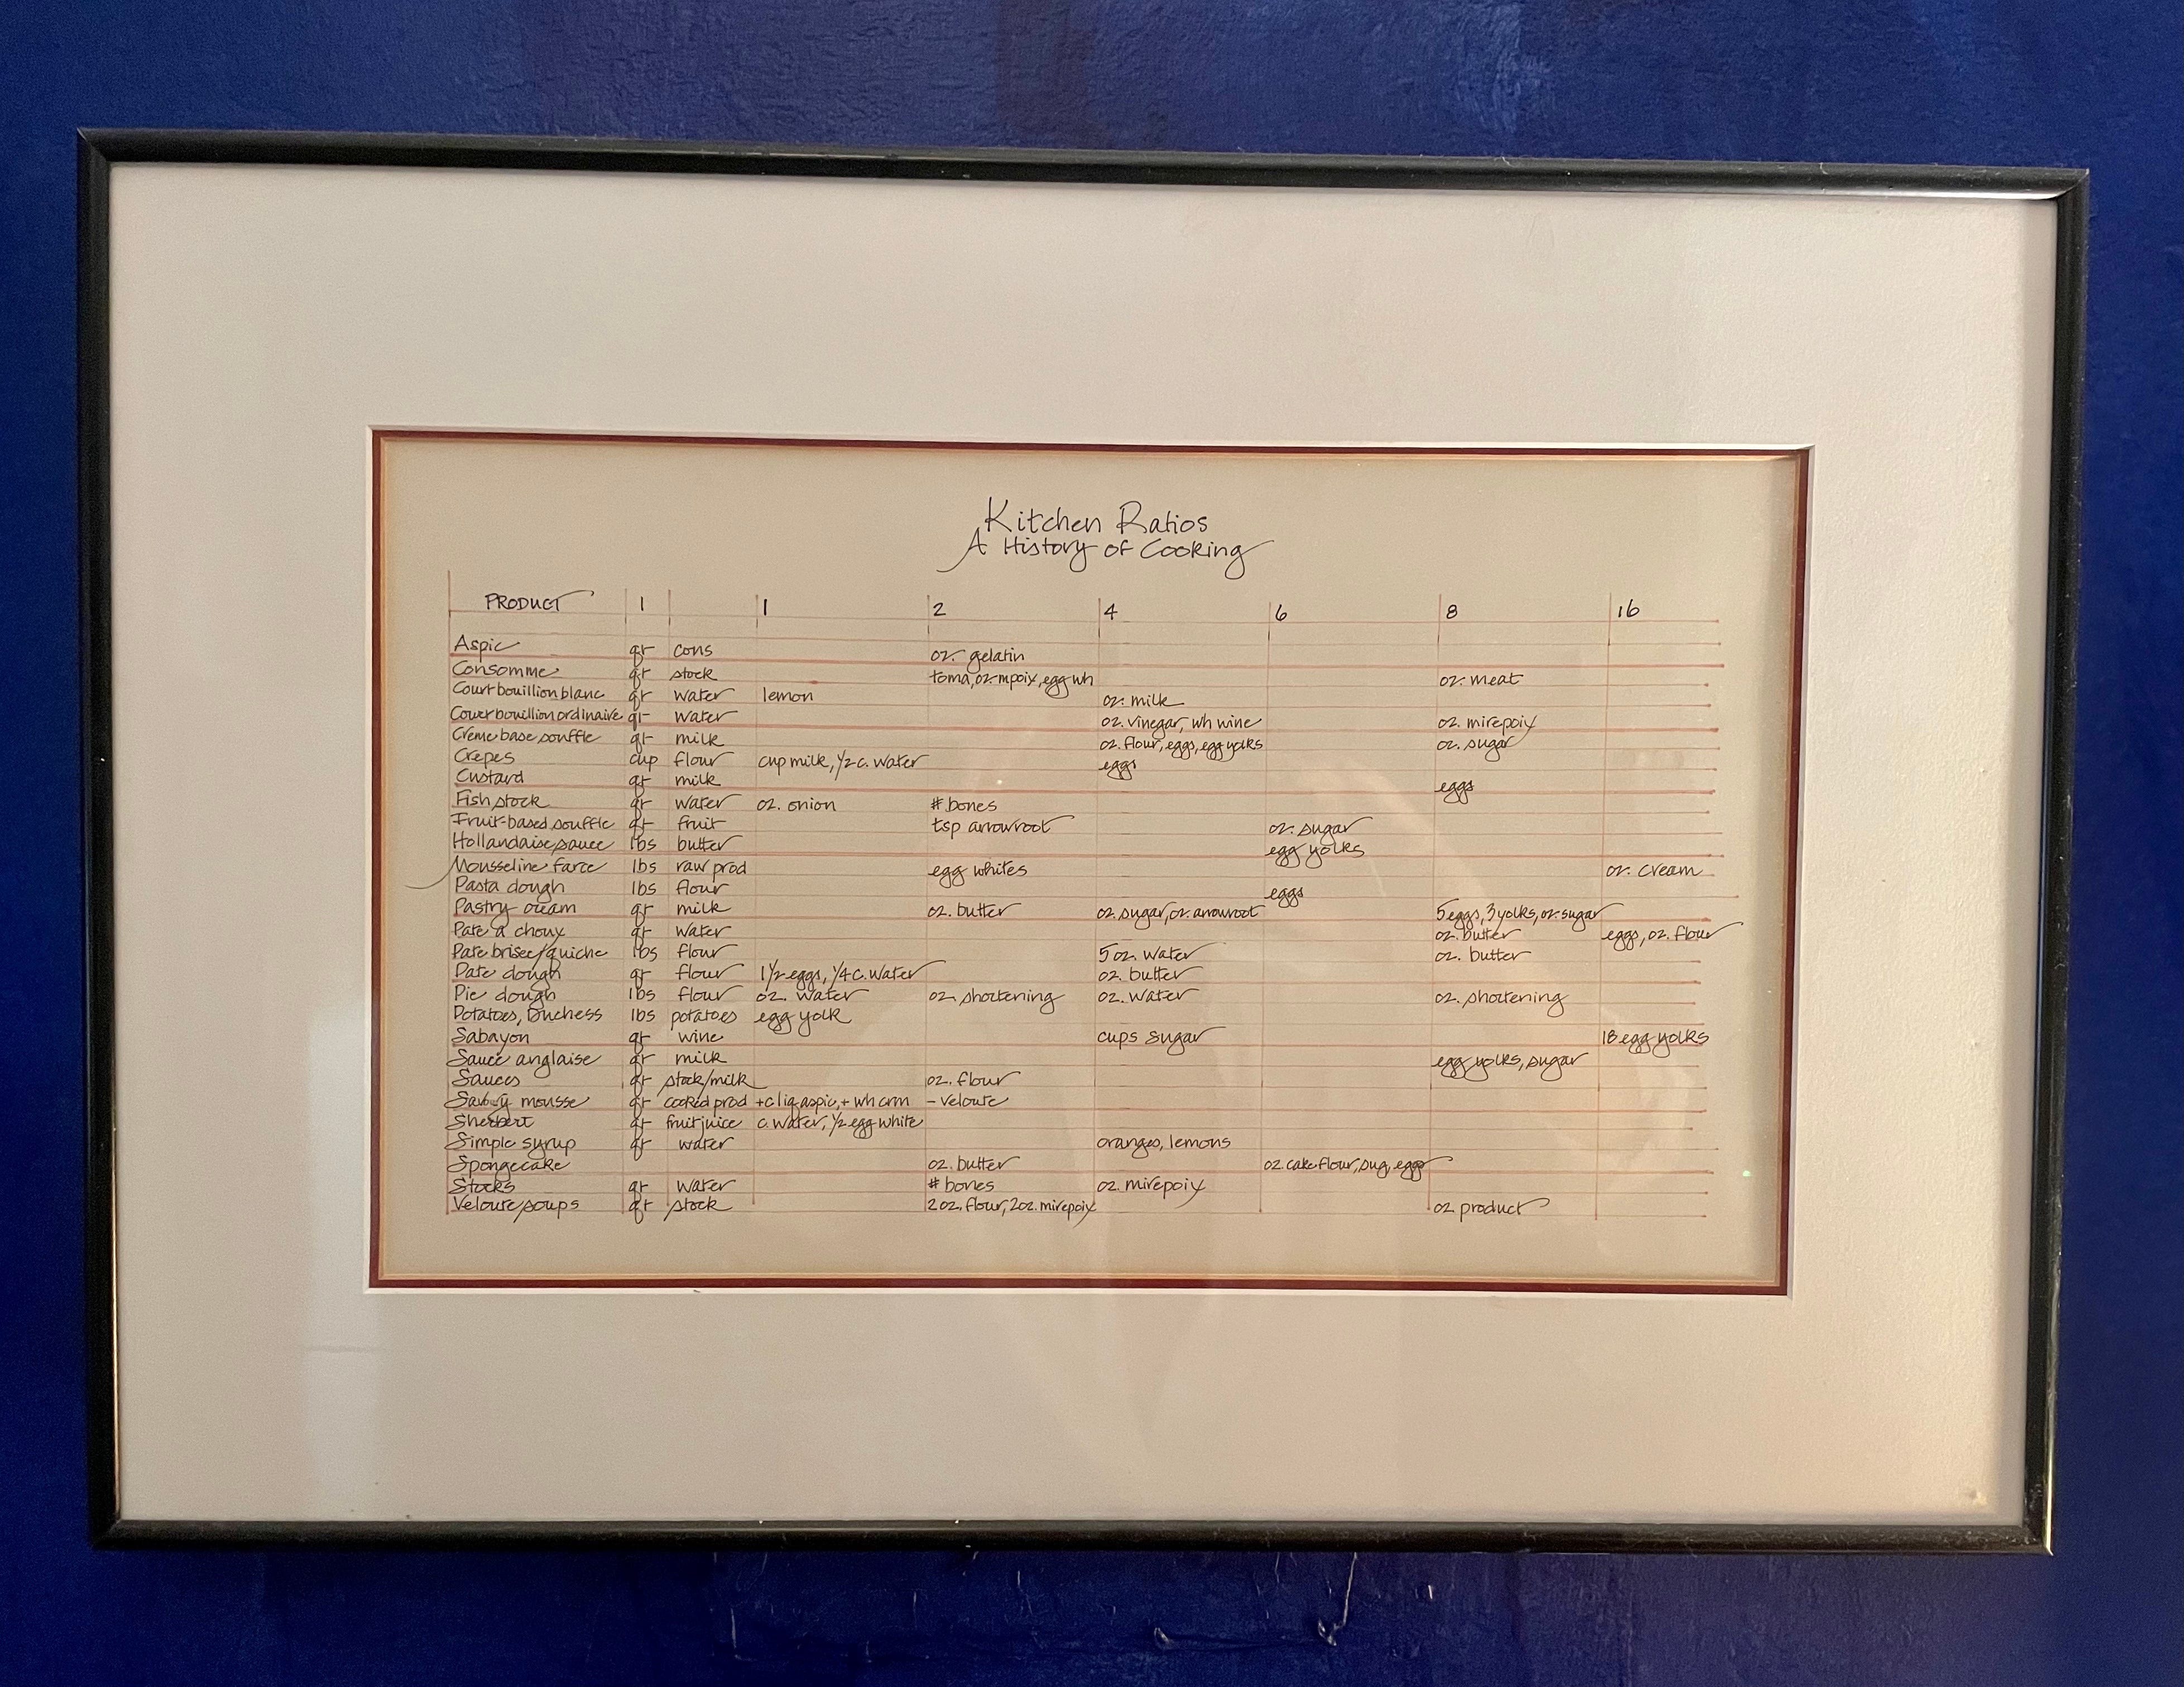 Kitchen Ratios
A History of Cooking
PRODUCT 1 1 2 4 6 8 16
Aspic qt cons oz. gelatin
Consomme qt stock toma, oz. mpoix, egg wh oz. meat
Court bouillion blanc qt water lemon oz. milk
Court bouillion ordinaire qt water oz. vinegar, wh wine oz. mirepoix
Creme base souffle qt milk oz. flour, eggs, egg yolks oz. sugar
Crepes cup flour cup milk, 1/2 c. water eggs
Custard qt milk eggs
Fish stock qt water oz. onion # bones
Fruit-based souffle qt fruit tsp arrowroot oz. sugar
Hollandaise sauce lbs butter egg yolks
Mousseline farce lbs raw prod egg whites oz. cream
Pasta dough lbs flour eggs
Pastry cream qt milk oz. butter oz. sugar, oz. arrowroot 5 eggs, 3 yolks, oz. sugar
Pate a choux qt water oz. butter eggs, oz. flour
Pate brisee/quiche lbs flour 5 oz. water oz. butter
Pate dough qt flour 1 1/2 eggs, 1/4 c. water oz. butter
Pie dough lbs flour oz. water oz. shortening oz. water oz. shortening
Potatoes, Duchess lbs potatoes egg yolk
Sabayon qt wine cups sugar 18 egg yolks
Sauce anglaise qt milk egg yolks, sugar
Sauces qt stock/milk oz. flour
Savory mousse qt cooked prod +c liq aspic, + wh crm - veloute
Sherbert qt fruit juice c. water, 1/2 egg white
Simple syrup qt water oranges, lemons
Spongecake oz. butter oz. cake flour, sug, eggs
Stocks qt water # bones oz. mirepoix
Veloute soups qt stock 2 oz. flour, 2 oz. mirepoix oz product